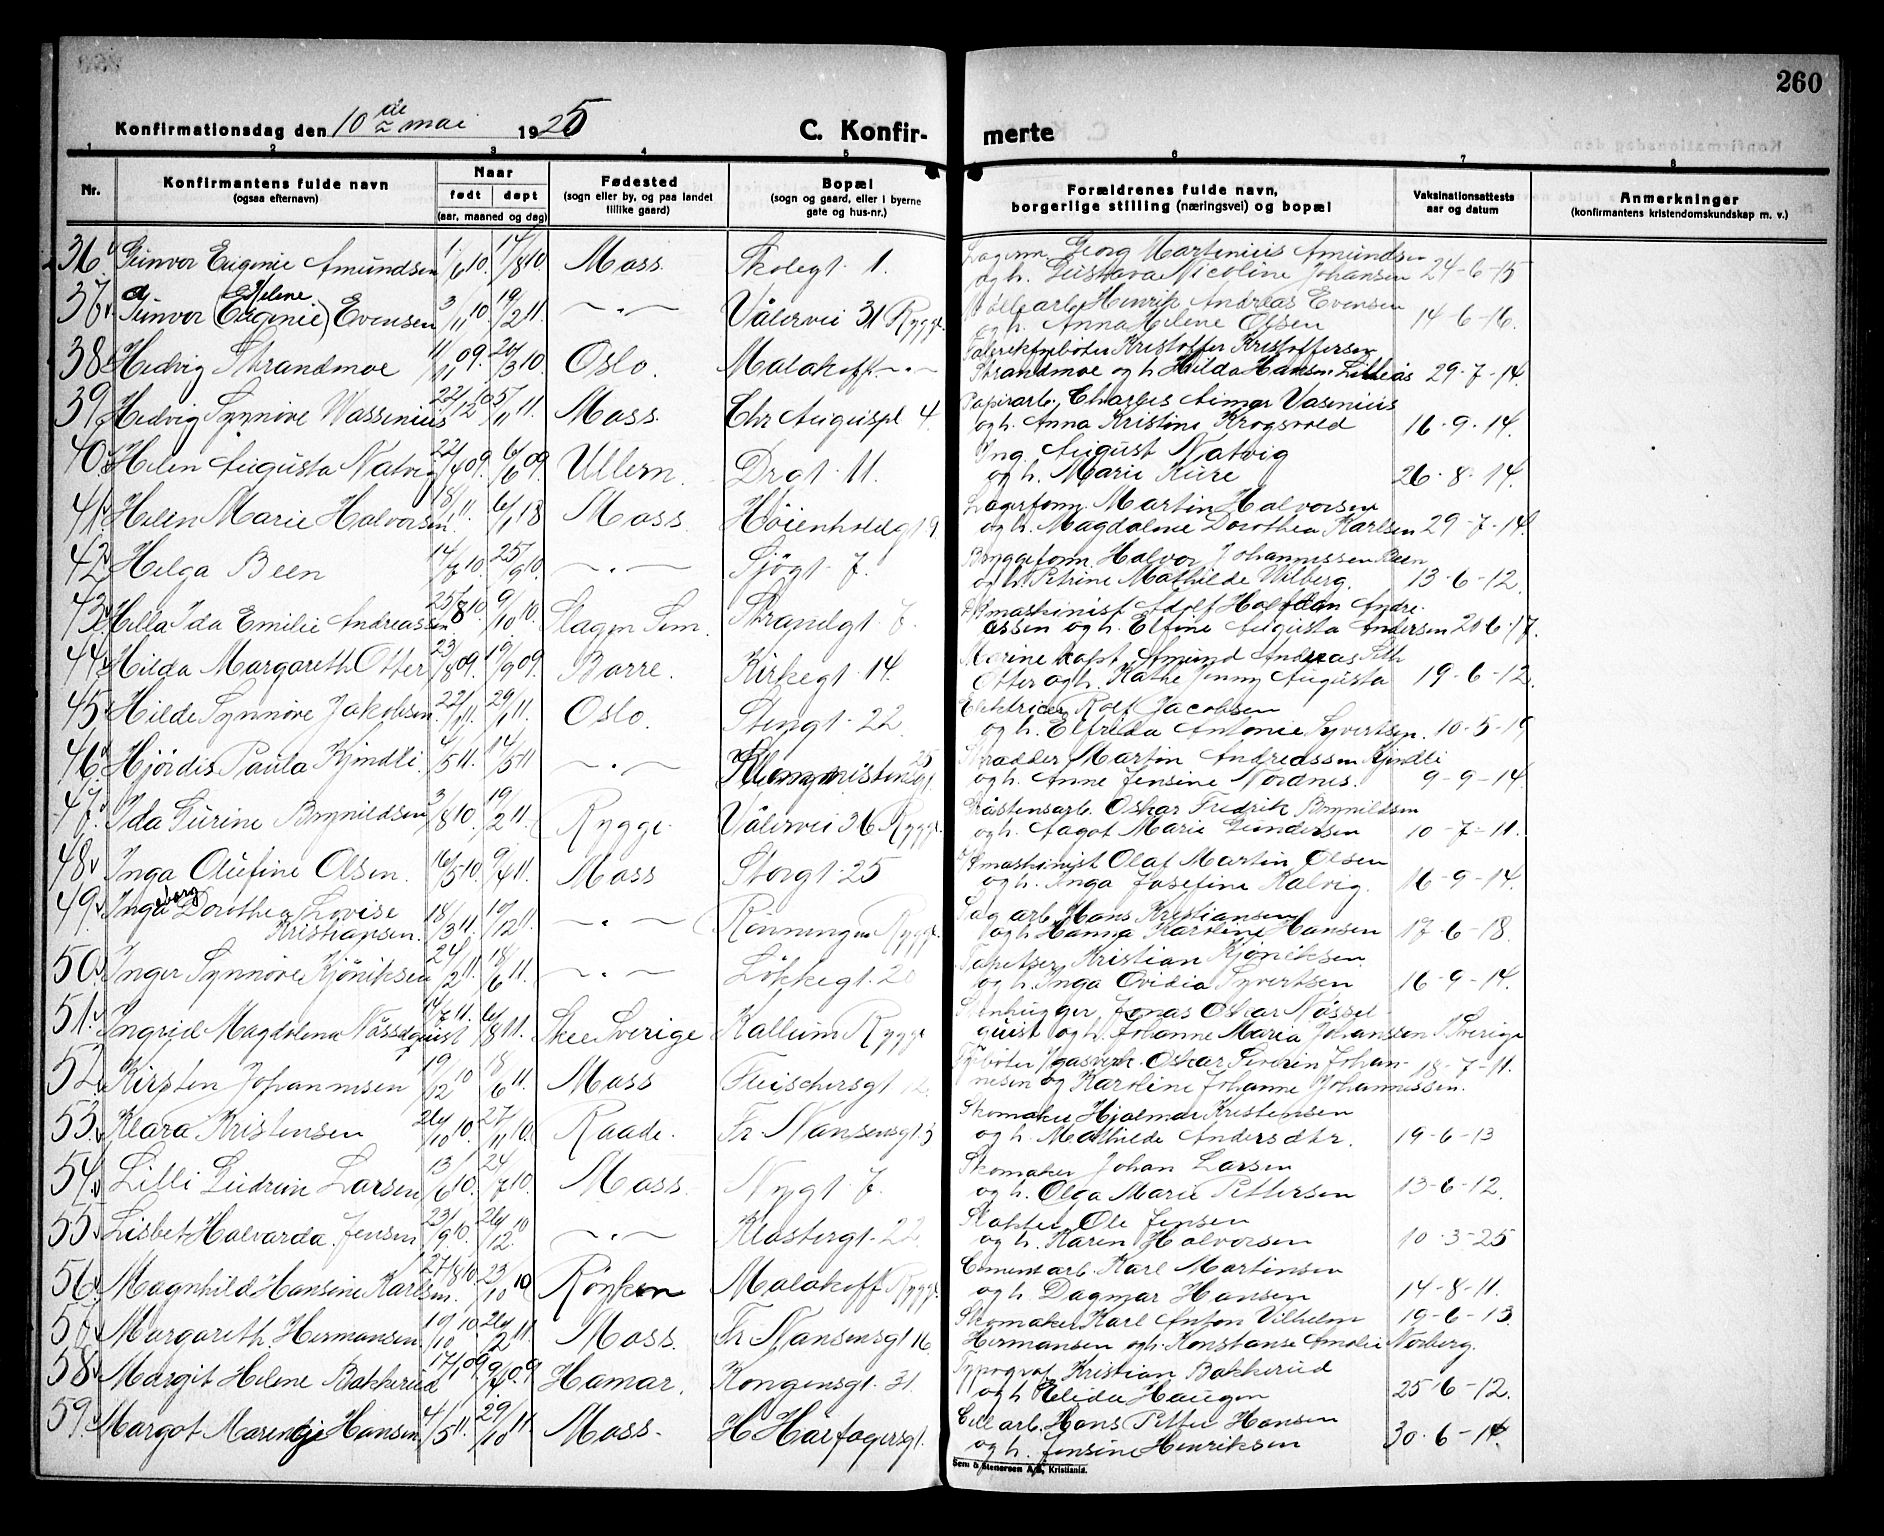 260
Konfirmationsdag den 10de mai 1925
C. Konfir- merte
1 2 3 4 5 6 7 8
Nr.
Konfirmantens fulde navn
(ogsaa efternavn)
Naar
født døpt
(aar, maaned og dag)
Fødested
(sogn eller by, og paa landet
tillike gaard)
Bopæl
(sogn og gaard, eller i byerne
gate og hus-nr.)
Forældrenes fulde navn,
borgerlige stilling (næringsvei) og bopæl
Vaksinationsattests
aar og datum
Anmerkninger
(konfirmantens kristendomskundskap m. v.)
36 Gunvor Eugenie Amundsen 1/6 10. 17/8 10. Moss Skolegt. 1. Georg Martinius Amundsen
og h. Gustava Nicoline Johansen 24-6-15
37 Gunvor (Eugenie) Helene Evensen 3/11 10 19/2 11. —„— Vålervei 31 Rygge Henrik Andreas Evensen
og h. Anna Helene Olsen 14-6-16.
38 Hedvig Strandmoe 11/11 09. 28/3 10 Oslo. Malakoff —„— Fabrikfyrbøter Kristoffer Kristoffersen
Strandmoe og h. Hilda Hansen Lilleås 29-7-14.
39 Hedvig Synnøve Wassenius 22/12 10 5/11 11. Moss. Chr Augustpl 4. Papirarb. Charles Aimar Vasenius
og h. Anna Kristine Krogsvold 16-9-14.
40 Helen Augusta Natvig 22/4 09. 6/6 09. Ullern. Drgt. 11. Ing. August Natvig
og h. Marie Kure 26-8-14.
41 Helen Marie Halvorsen 18/1 11. 6/1 18 Moss. Høienholdgt 9 Lagerform. Martin Halvorsen
og h. Magdalene Dorothea Karlsen 29-7-14.
42 Helga Been 14/7 10. 25/9 10. —„— Sjøgt. 7. Byggeform. Halvor Johannessen Been
og h. Petrine Mathilde Wilberg. 13-6-12.
43 Hella Ida Emilie Andreassen 25/8 10. 9/10 10. Slagen Sem. Strandgt 7. Adolf Halfdan Andre-
assen og h. Elfine Augusta Andersen 20-6-17.
44 Hilda Margareth Otter 23/8 09. 19/9 09. Borre. Kirkegt. 14. Marinekapt. Amund Andreas
Otter og h. Kathe Jenny Augusta 19-6-12.
45 Hilde Synnøve Jakobsen 22/1 11. 29/1 11. Oslo. Stengt. 22 Rolf Jacobsen
og h. Elfrida Antonie Syvertsen. 10-5-19
46 Hjördis Paula Kjindli 4/5 11. 14/5 11 —„— 25 Skrædder Martin Andreassen Kjindli
og h. Anne Jensine Nordnes. 9-9-14.
47 Ida Gurine Brynildsen 3/8 10. 19/2 11. Rygge Vålervei 36 Rygge Gråstensarb. Oskar Fredrik Brynildsen
og h. Aagot Marie Gundersen 10-7-11.
48 Inga Olufine Olsen. 16/5 10. 9/4 11. Moss Storgt. 25 Olaf Martin Olsen
og h. Inga Josefine Kalvig. 16-9-14.
49. Ingeborg Dorothea Lovise
Kristiansen. 18/3 11. 10/12 11. —„— Rönningen Rygge Sagarb. Hans Kristiansen
og h. Hanna Karoline Hansen 17-6-18.
50 Inger Synnøve Kjöniksen 24/2 11. 18/6 11. —„— Lökkegt. 20 Tapetser Kristian Kjöniksen
og h. Inga Ovidia Syvertsen 16-9-14.
51. Ingrid Magdalena Nässelquist 14/7 11. 6/8 11. Skee Sverige Kallum Rygge Stenhugger Jonas Oskar Nässel-
quist og h. Johanne Maria Johansson Sverige
52 Kirsten Johannesen 19/12 10 18/6 11. Moss Fleischersgt 12. Fyrböter v/ gasverk. Oskar Severin Johan-
nesen og Karoline Johanne Johannessen. 18-7-11.
53 Klara Kristensen 26/10 10. 27/11 10. Raade. Fr. Nansensgt 3 Skomaker Hjalmar Kristensen
og h. Mathilde Andersdtr. 19-6-13
54 Lilli Gudrun Larsen 13/6 10. 24/7 10. Moss. Nygt. 7. Skomaker Johan Larsen
og h. Olga Marie Pettersen 13-6-12.
55 Lisbet Halvarda Jensen 23/9 10. 26/12 10 —„— Klostergt. 22. Slakter Ole Jensen
og h. Karen Halvorsen 10-3-25
56 Magnhild Hansine Karlsen. 27/8 10. 23/10 10 Röyken Malakoff Rygge. Cementarb. Karl Martinsen
og h. Dagmar Hansen 14-8-11.
57 Margareth Hermansen 19/10 10 26/2 11. Moss. Fr. Nansensgt 16 Skomaker Karl Anton Vilhelm
Hermansen og h. Konstanse Amalie Norberg. 19-6-13.
58 Margit Helene Bakkerud Hamar. Kongensgt. 31. Typograf Kristian Bakkerud
og h. Haugen 25-6-12.
59 Margot Hansen 4/5 11. 29/10 11 Moss. H Hårfagersgt. Cell arb. Hans Petter Hansen
og h. Jensine Henriksen 30-6-14.
Sem & Stenersen A/S, Kristiania.